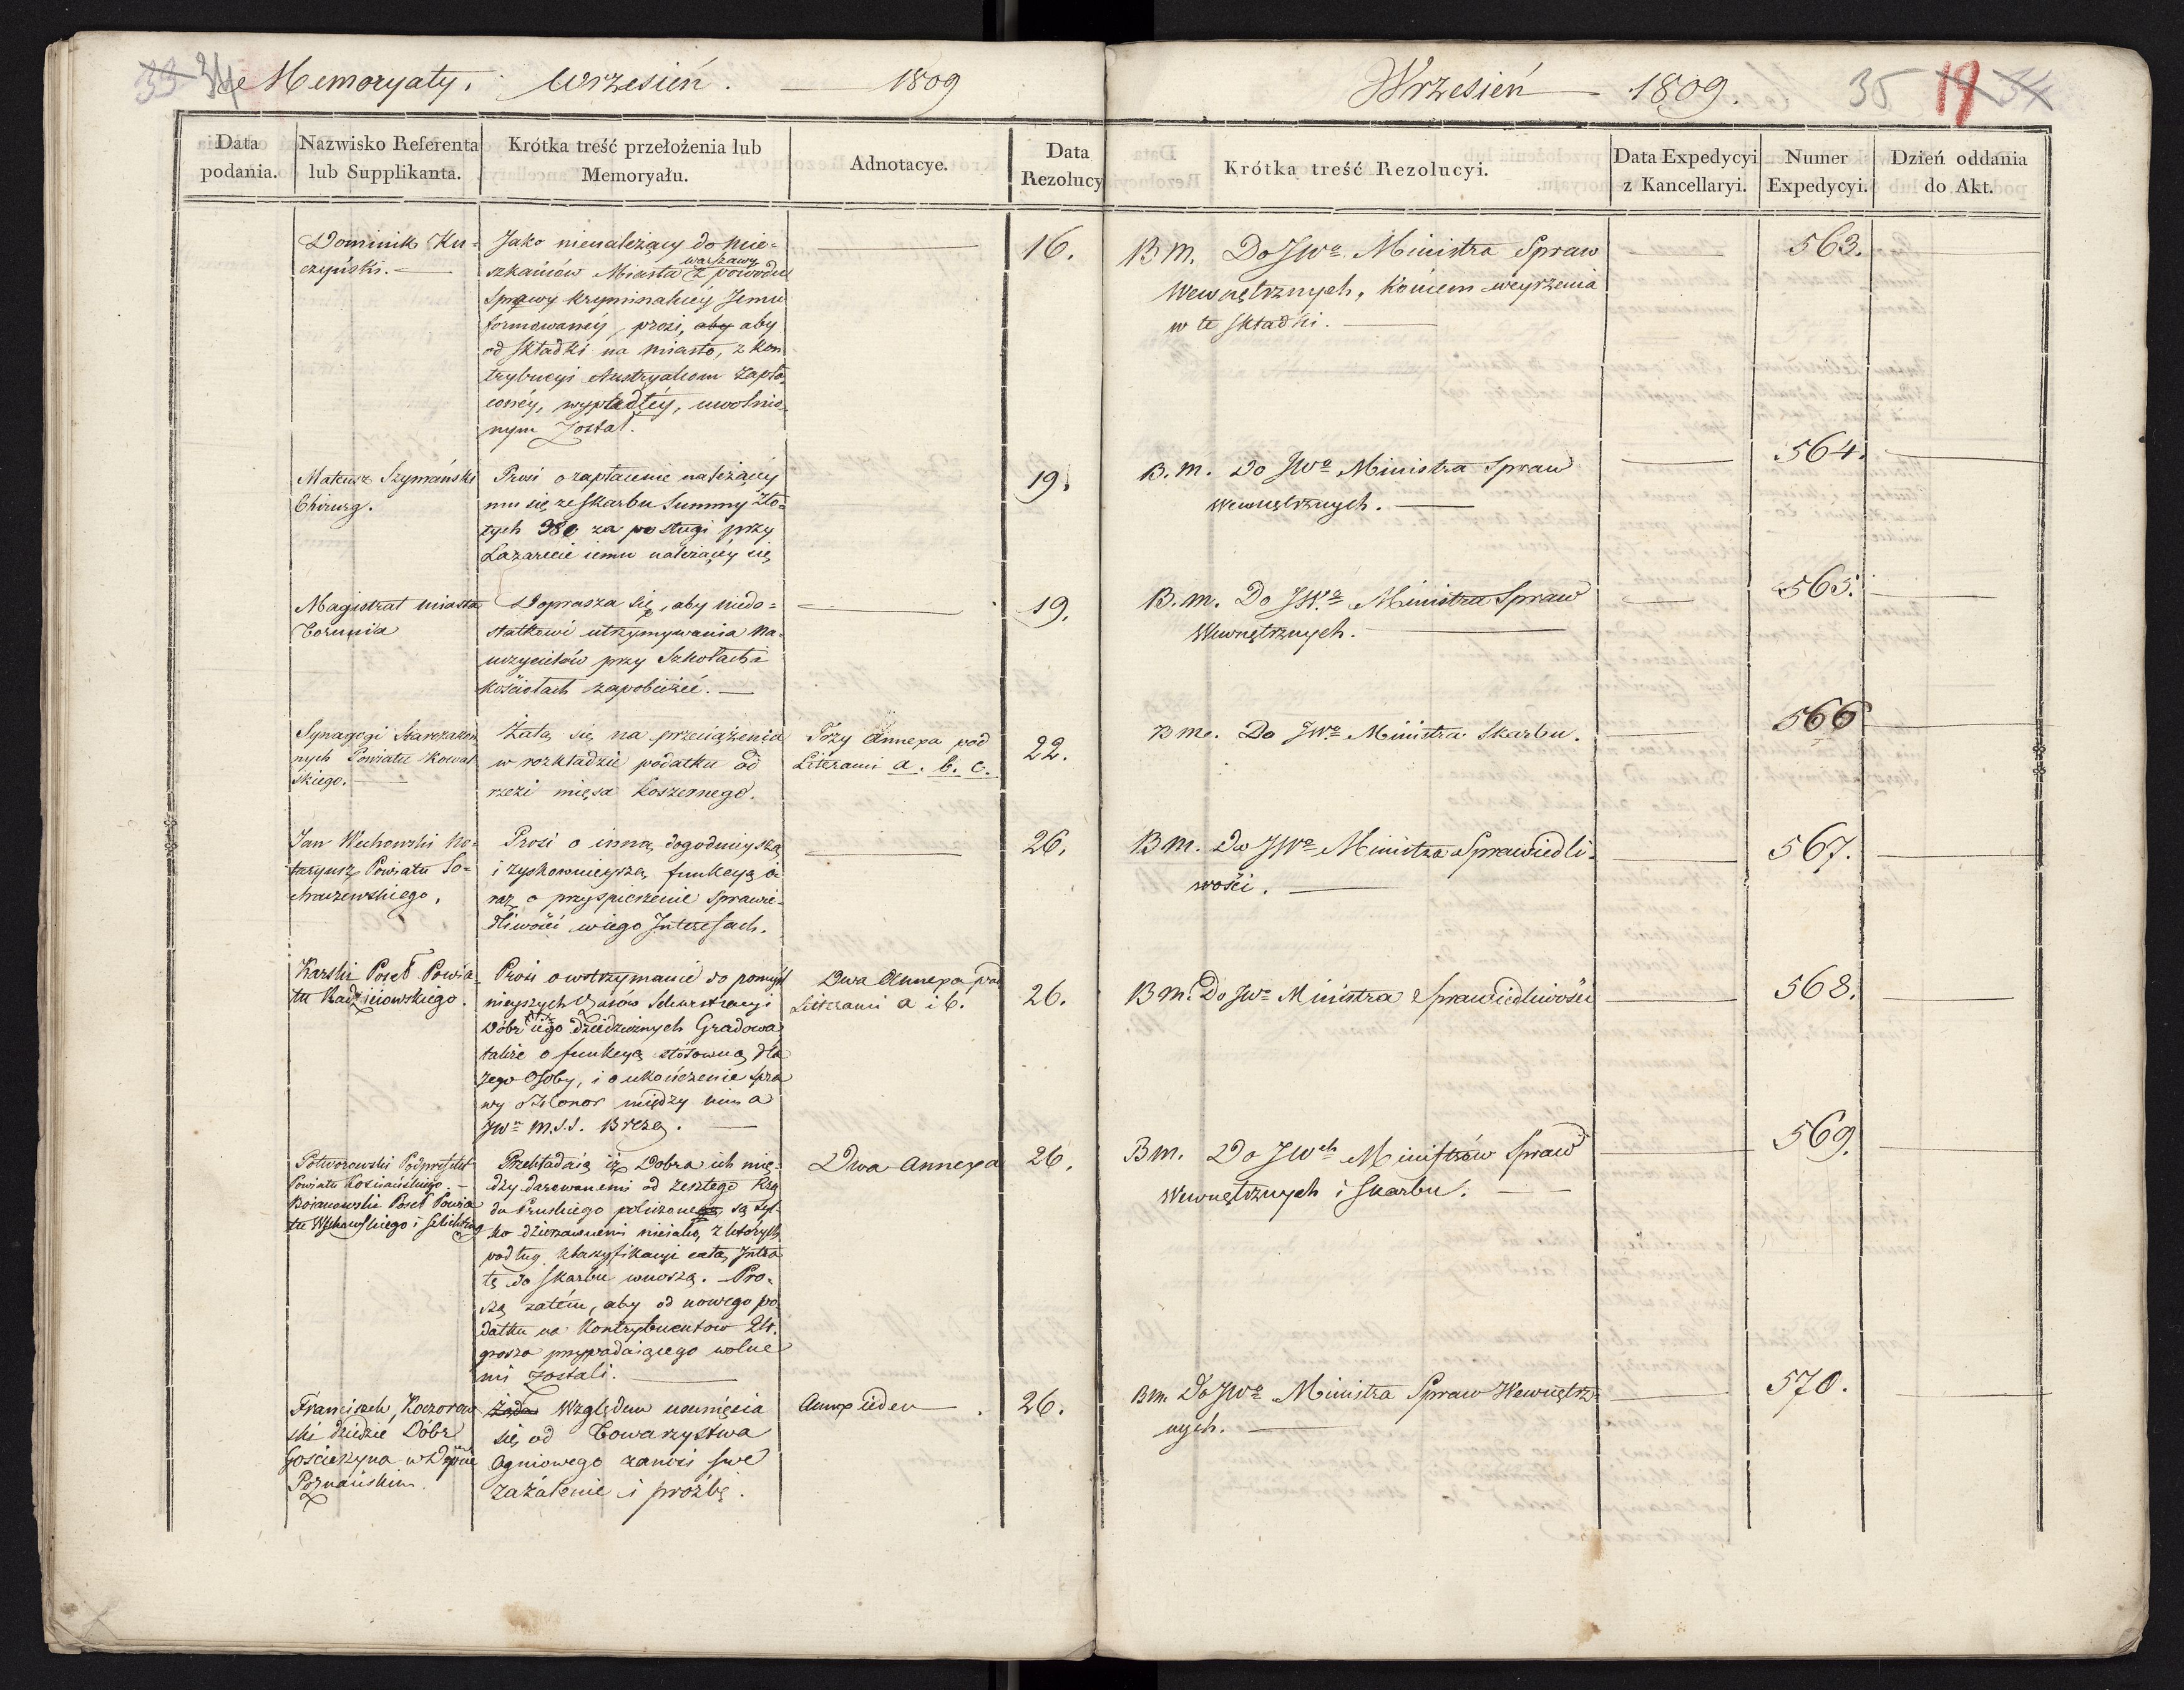 33 34 Memoryały. Wrzesień. — 1809
Wrzesień — 1809. 35 19 34
Data podania.
Nazwisko Referenta
lub Supplikanta.
Krótka treść przełożenia lub
Memoryału.
Adnotacye.
Data
Rezolucyi
Krótka treść Rezolucyi.
Data Expedycyi
z Kancellaryi.
Numer
Expedycyi.
Dzień oddania
do Akt.
Dominik Ku=
czyński. —
Jako nienależący do mie=
szkańców Miasta Warszawy z powodu
Sprawy kryminalney Jemu
formowaney, prosi, aby aby
od Składki na miasto, z kon
trybucyi Austryakom zapła
coney, wypadłey, uwolnio
nym Został.
16.
B m. Do JWo Ministra Spraw
Wewnętrznych, końcem weyrzenia
w te Składki. —
563.
Mateusz Szymański
Chirurg.
Prosi o zapłacenie należącey
mu się ze Skarbu Summy Zło=
tych 980 za posługi przy
Lazarecie iemu należącey się
19.
B. m. Do JWo Ministra Spraw
Wewnętrznych. —
564.
Magistrat miasta
Torunia
Doprasza się, aby niedo=
statkowi utrzymywania na=
uczycielów przy Szkołach i
Kościołach zapobieżeć. —
19.
B. m. Do JWo Ministra Spraw
Wewnętrznych. —
565.
Synagogi Starozakon
nych Powiatu Kowal
skiego. —
Żalą się na przeciążenia
w rozkładzie podatku od
rzezi mięsa koszernego.
Trzy Annexa pod
Literami a. b. c.
22.
B m. Do JWo Ministra Skarbu.
566
Jan Wichowski No=
taryusz Powiatu So=
chaczewskiego.
Prosi o inną dogodnieyszą
i zyskownieyszą funkcyą o
raz o przyspieszenie sprawie=
dliwości w iego Interesach.
26.
B m. Do JWo Ministra Sprawiedli=
wości. —
567.
Karski Poseł Powia=
tu Radzieiowskiego.
Prosi o wstrzymanie do pomyśl
nieyszych Czasów Sekwestracyi
Dóbr iego dziedzicznych Gradowa
także o funkcyą stósowną dla
Jego Osoby, i o ukończenie Spra
wy o Honor między nim a
JWm M. S. S. Brezą. —
Dwa Annexa pod
Literami a i b.
26.
B m. Do JWo Ministra Sprawiedliwości
568.
Potworowski Podprefekt
Powiatu Kościańskiego. —
Boianowski Poseł Powia
tu Wschowskiego i Schlichting
Przekładaią iż Dobra ich mię=
dzy darowanemi od zeszłego Rzą
du Pruskiego policzone są tyl=
ko dzierżawnemi nieiako, z których
według klassyfikacyi całą Intra
tę do Skarbu wnoszą. — Pro=
szą zatém, aby od nowego po
datku na Kontrybuentow 24.
grosza przypadaiącego wolne
mi zostali. —
Dwa Annexa
26.
B m. Do JWch Ministrów Spraw
Wewnętrznych i Skarbu. —
569.
Franciszek Koczorow
ski Dziedzic Dóbr
Gościeszyna w Dppcie
Poznańskim.
Żąda Względem usunięcia
się od Towarzystwa
Ogniowego zanosi swe
zażalenie i proźbę.
Annex ieden —.
26.
B m. Do JWo Ministra Spraw Wewnętrz=
nych. —
570.